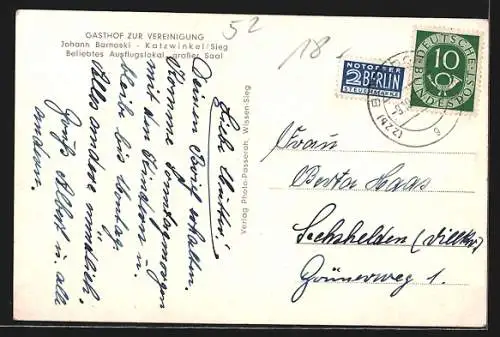 52
18.-
GASTHOF ZUR VEREINIGUNG
Johann Barnoski - Katzwinkel/Sieg
Beliebtes Ausflugslokal, großer Saal
Liebe Mutter!
Deinen Brief erhalten.
Komme Sonntagmorgen
mit den Kindern u.
bleibe bis Montag.
Alles andere mündlich.
Gruß Albert u. alle
andern.
Verlag Photo-Passerah, Wissen-Sieg
NOTOPFER
2 BERLIN
STEUERMARKE
DEUTSCHE
BUNDESPOST
10
Frau
Berta Haas
Sechshelden (Dillkr.)
Grünerweg 1.